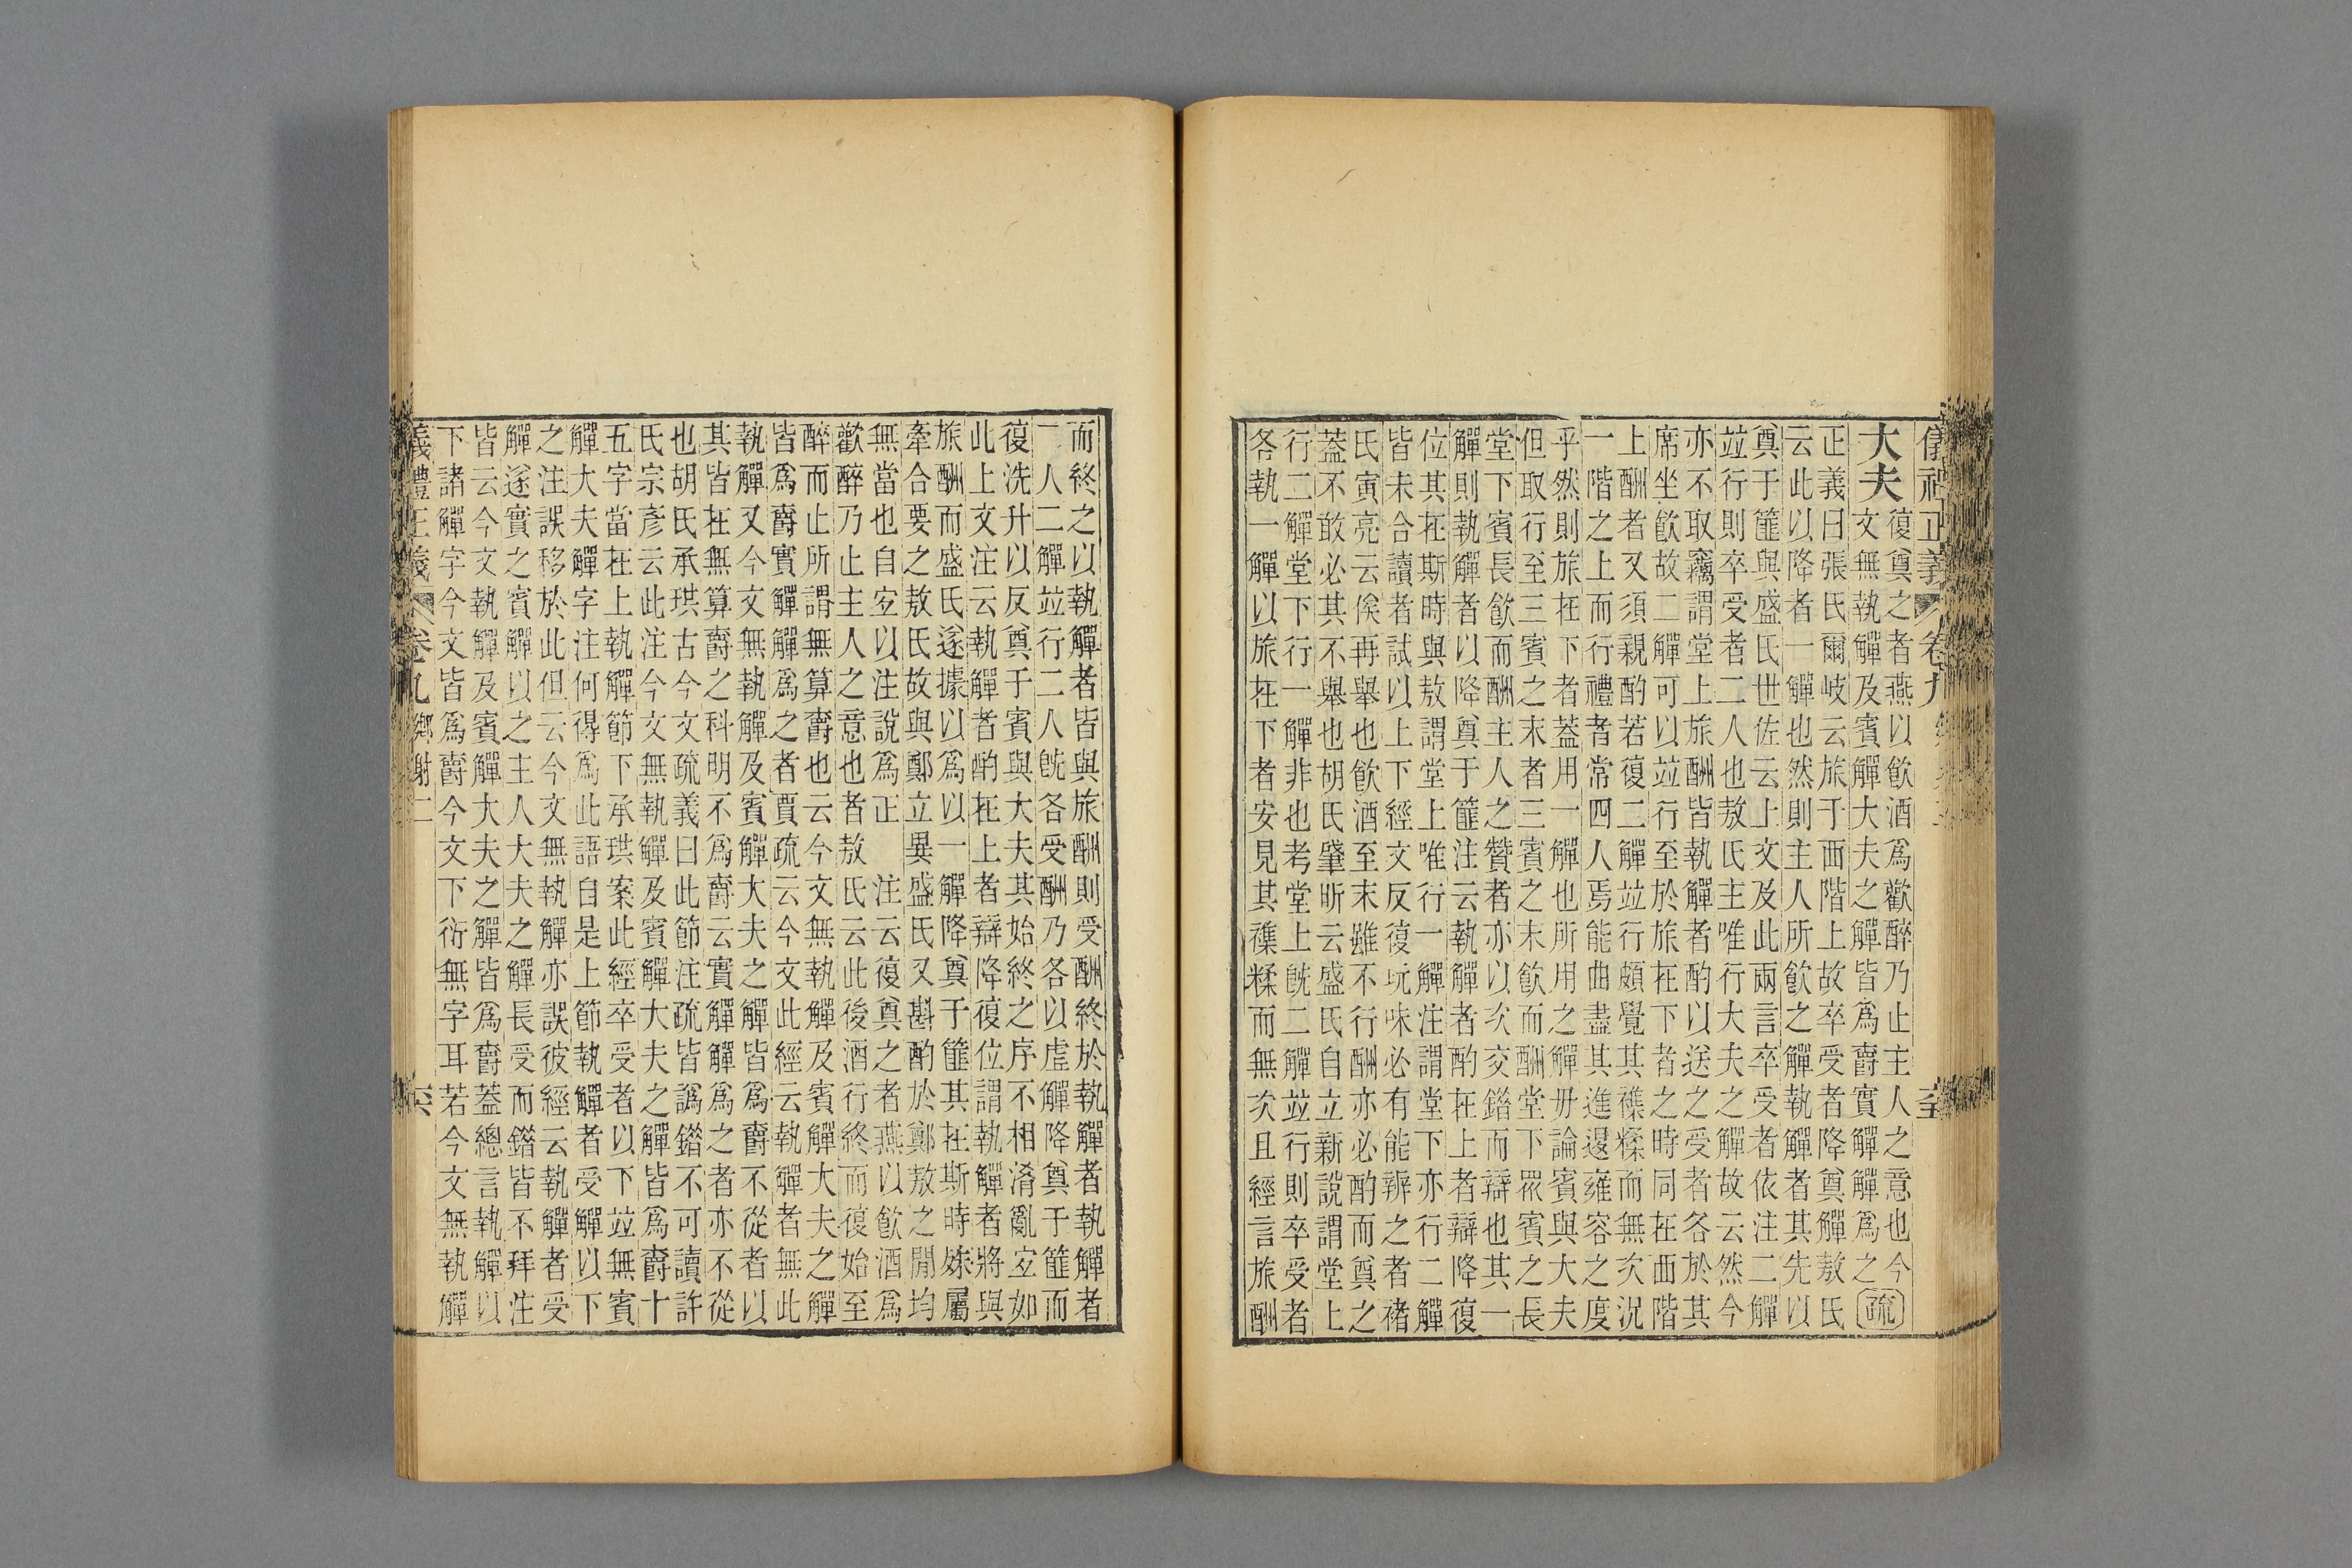 儀禮正義 卷九
大夫復奠之者燕以飲酒爲歡醉乃止主人之意也今
文無執觶及賓觶大夫之觶皆爲爵實觶觶爲之 疏
正義曰張氏爾岐云旅于西階上故卒受者降奠觶敖氏
云此以降者一觶也然則主人所飲之觶執觶者其先以
奠于篚與盛氏世佐云上文及此兩言卒受者依注二觶
竝行則卒受者二人也敖氏主唯行大夫之觶故云然今
亦不取竊謂堂上旅酬皆執觶者酌以送之受者各於其
席坐飲故二觶可以竝行至於旅在下者之時同在西階
上酬者又須親酌若復二觶竝行頗覺其襍糅而無次況
一階之上而行禮者常四人焉能曲盡其進退雍容之度
乎然則旅在下者蓋用一觶也所用之觶毋論賓與大夫
但取行至三賓之末者三賓之末飲而酬堂下衆賓之長
堂下賓長飲而酬主人之贊者亦以次交錯而辯也其一
觶則執觶者以降奠于篚注云執觶者酌在上者辯降復
位其在斯時與敖謂堂上唯行一觶注謂堂下亦行二觶
皆未合讀者試以上下經文反復玩味必有能辨之者褚
氏寅亮云俟再舉也飲酒至末雖不行酬亦必酌而奠之
蓋不敢必其不舉也胡氏肇昕云盛氏自立新說謂堂上
行二觶堂下行一觶非也考堂上旣二觶竝行則卒受者
各執一觶以旅在下者安見其襍糅而無次且經言旅酬
而終之以執觶者皆與旅酬則受酬終於執觶者執觶者
二人二觶竝行二人旣各受酬乃各以虛觶降奠于篚而
復洗升以反奠于賓與大夫其始終之序不相淆亂宐如
此上文注云執觶者酌在上者辯降復位謂執觶者將與
旅酬而盛氏遂據以爲以一觶降奠于篚其在斯時殊屬
牽合要之敖氏故與鄭立異盛氏又斟酌於鄭敖之間均
無當也自宐以注說爲正 注云復奠之者燕以飲酒爲
歡醉乃止主人之意也者敖氏云此後酒行終而復始至
醉而止所謂無算爵也云今文無執觶及賓觶大夫之觶
皆爲爵實觶觶爲之者賈疏云今文此經云執觶者無此
執觶又今文無執觶及賓觶大夫之觶皆爲爵不從者以
其皆在無算爵之科明不爲爵云實觶觶爲之者亦不從
也胡氏承珙古今文疏義曰此節注疏皆譌錯不可讀許
氏宗彥云此注今文無執觶及賓觶大夫之觶皆爲爵十
五字當在上執觶節下承珙案此經卒受者以下竝無賓
觶大夫觶字注何得爲此語自是上節執觶者受觶以下
之注誤移於此但云今文無執觶亦誤彼經云執觶者受
觶遂實之賓觶以之主人大夫之觶長受而錯皆不拜注
皆云今文執觶及賓觶大夫之觶皆爲爵蓋總言執觶以
下諸觶字今文皆爲爵今文下衍無字耳若今文無執觶
義禮正義 卷九鄉射二